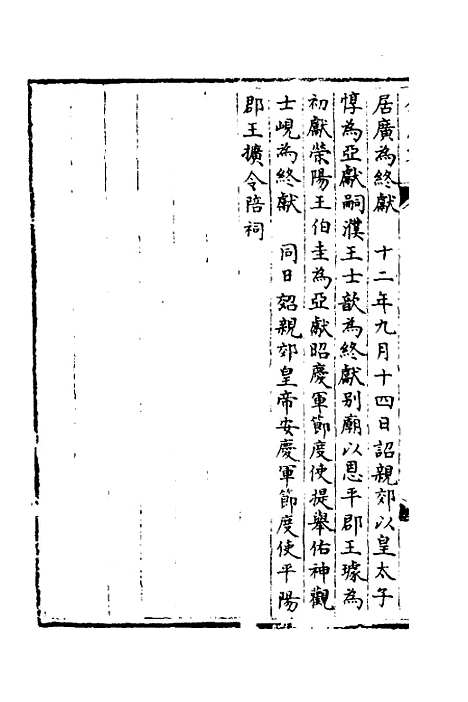 居廣為終獻　十二年九月十四日詔親郊以皇太子
惇為亞獻嗣濮王士歆為終獻別廟以恩平郡王璩為
初獻滎陽王伯圭為亞獻昭慶軍節度使提舉佑神觀
士峴為終獻　同日詔親郊皇帝安慶軍節度使平陽
郡王擴令陪祠